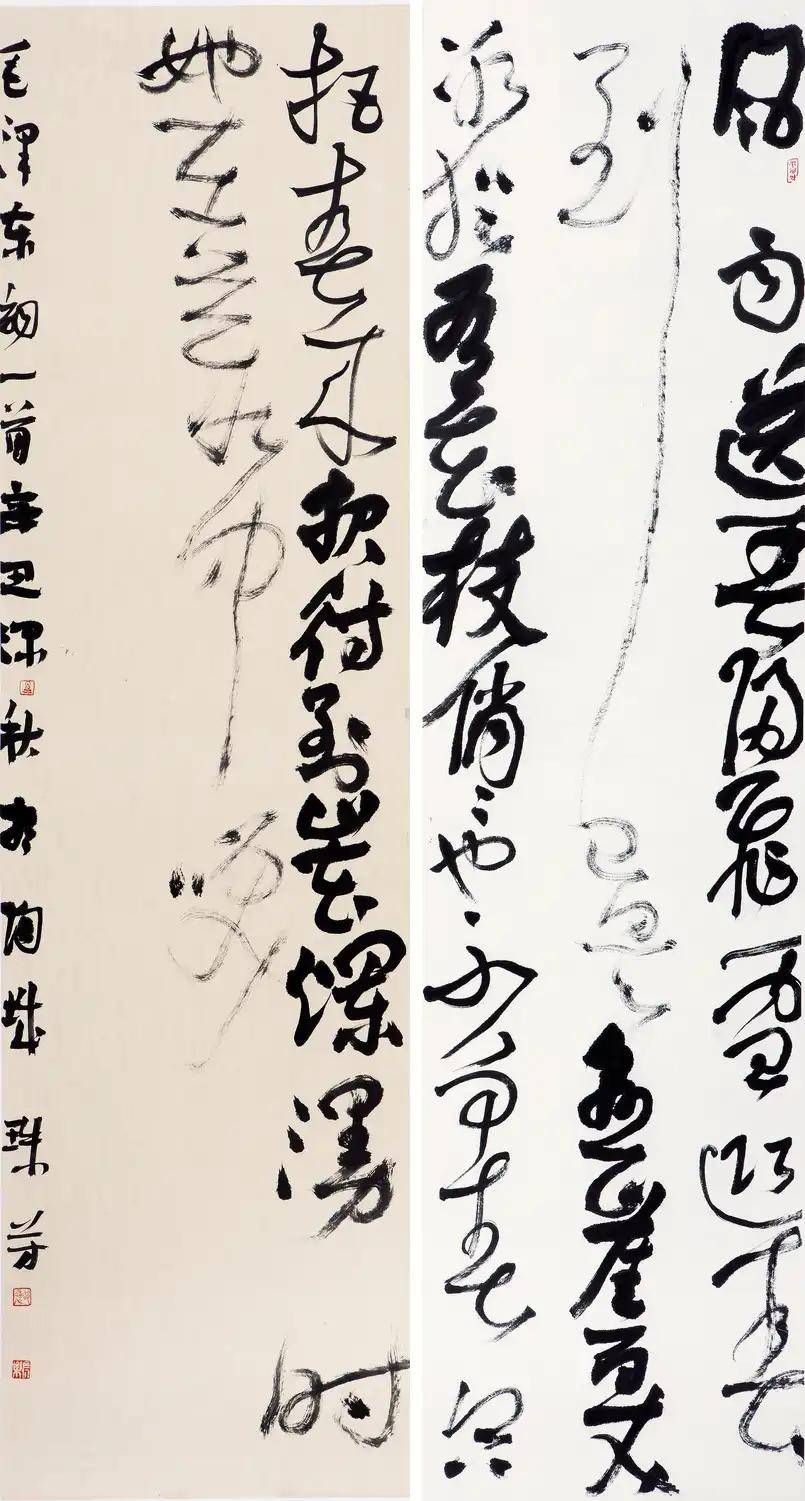 风雨送春归飞雪迎春
到已是悬崖百丈
冰犹有花枝俏〻也不争春只
把春来报待到山花烂漫时
她在丛中笑
毛泽东词一首辛卯深秋于珠芬